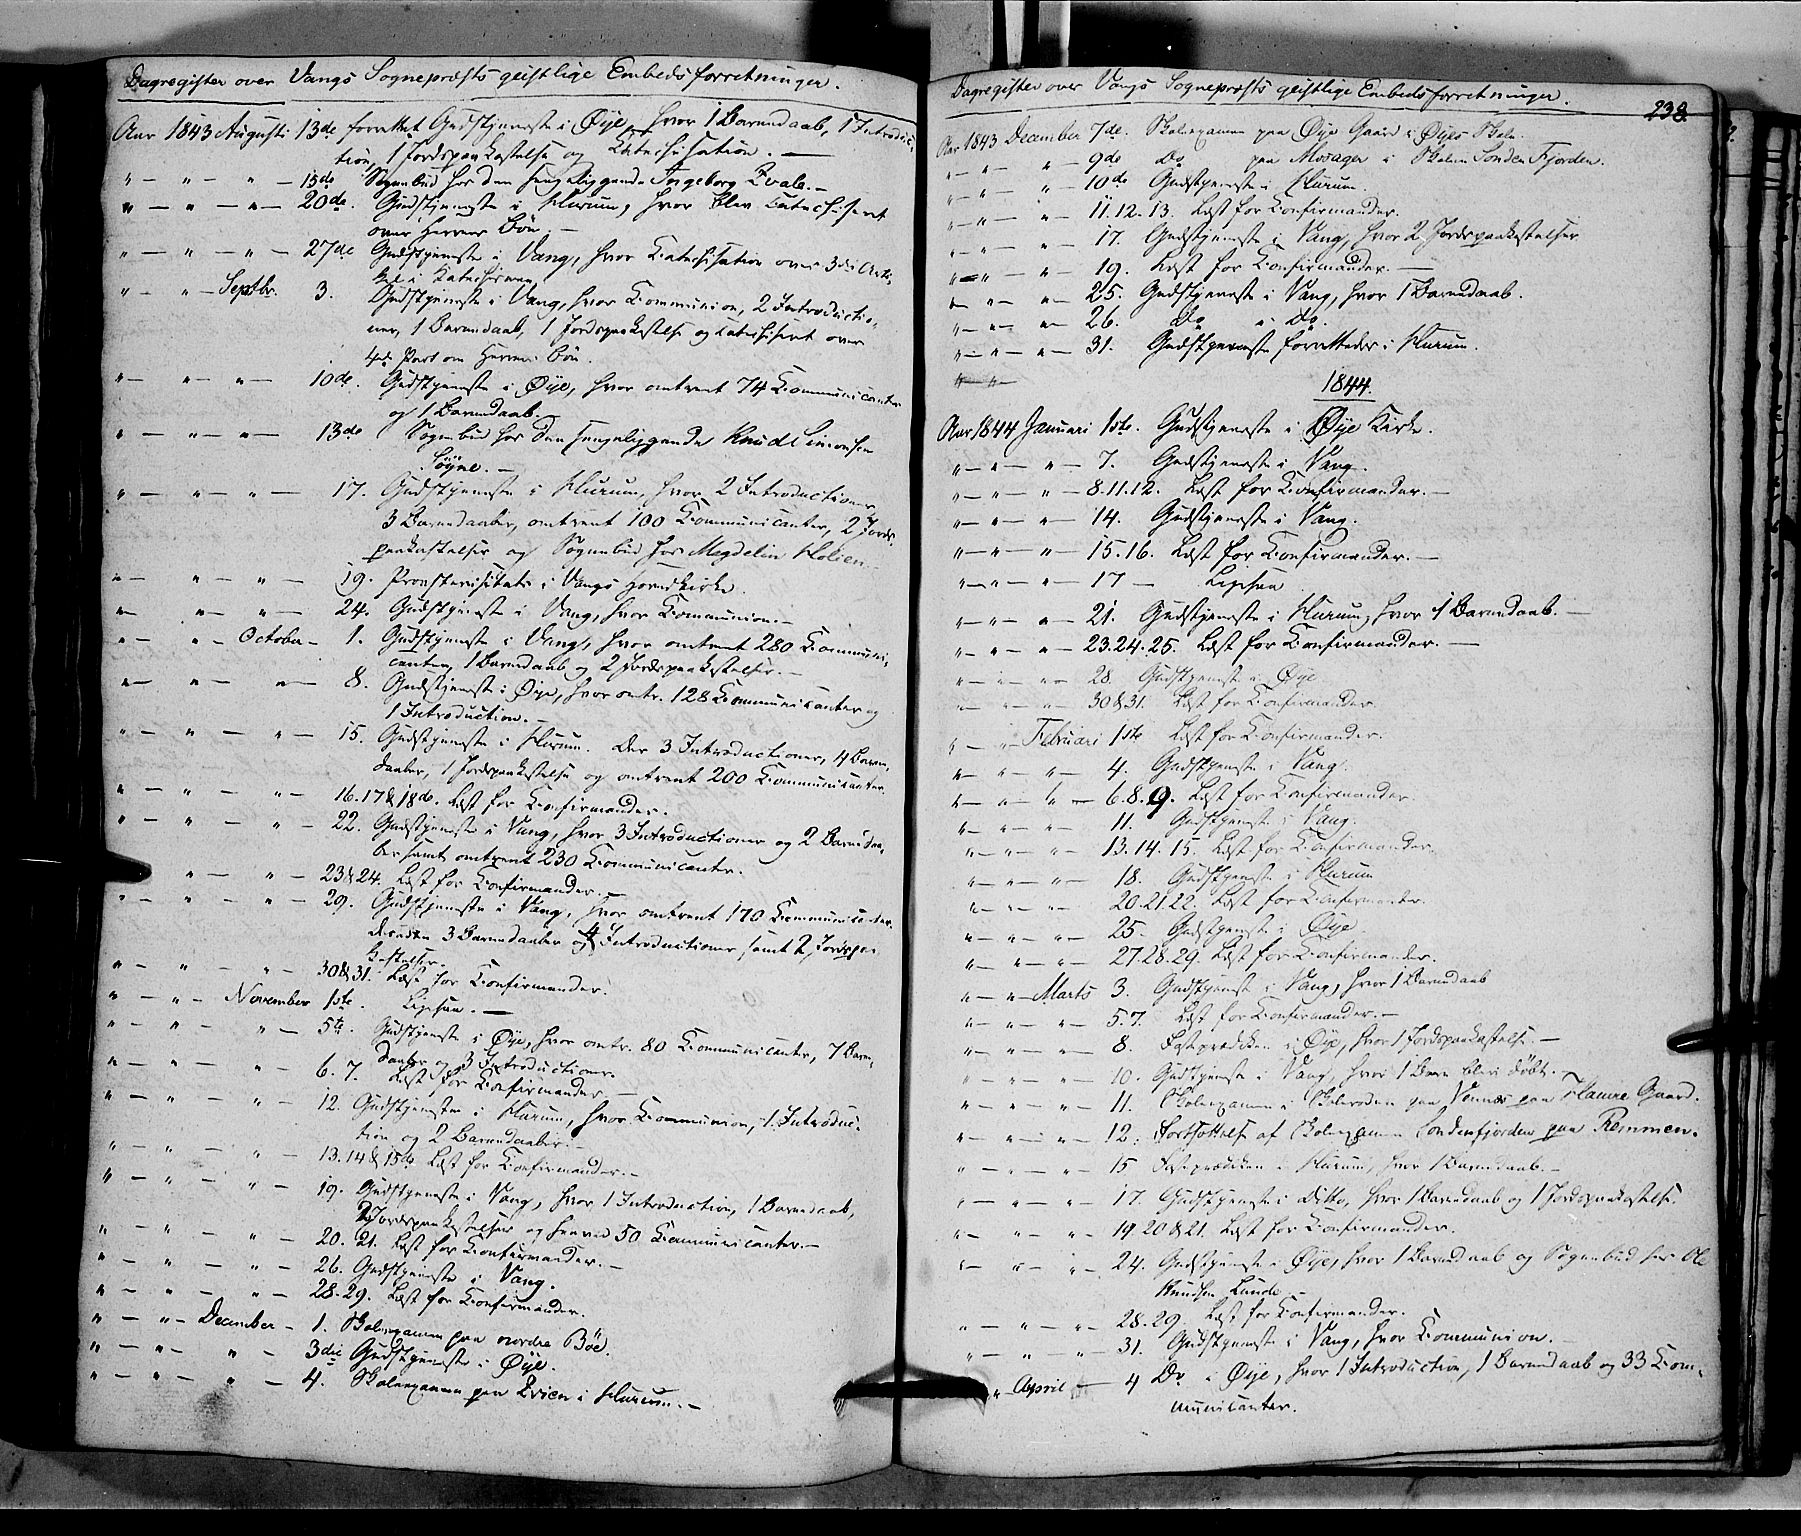 Dagregister over Vangs Sognepræsts geistlige Embedsforretninger.
Aar 1843 Augusti 13de forrettet Gudstjeneste i Øye, hvor 1 Barnedaab, 1 Introduc-
tion, 1 Jordspaakastelse og Katechisation. —
" — " — " — 15de Sognebud hos den sengeliggende Ingeborg Kvale. —
" — " — " — 20de. Gudstjeneste i Hurum, hvor blev catechiseret
over Herrens Bön. —
" — " — " — 27de Gudstjeneste i Vang, hvor Katechisation over 3die Arti-
kel i Katechismen
" — " — Septbr. 3. Gudstjeneste i Vang, hvor Communion, 2 Introductio-
ner, 1 Barnedaab, 1 Jordspaakastelse og catechiseret over
4de Part om Herrens Bön.
" — " — " — 10de. Gudstjeneste i Øye, hvor omtrent 74 Communicanter
og 1 Barnedaab. —
" — " — " — 13de Sognebud hos den sengeliggende Knud Simonsen
Söyne. —
" — " — " — 17. Gudstjeneste i Hurum, hvor 2 Introductioner,
3 Barnedaaber, omtrent 100 Communicanter, 2 Jords-
paakastelser og Sognebud hos Megdelin Holien. —
" — " — " — 19. Provstevisitats i Vangs Hovedkirke.
" — " — " — 24. Gudstjeneste i Vang, hvor Communion. —
" — " — October — 1. Gudstjeneste i Vang, hvor omtrent 280 Communi-
canter, 1 Barnedaab og 2 Jordspaakastelser. —
" — " — " — 8. Gudstjeneste i Øye, hvor omtr. 128 Communicanter og
1 Introduction. —
" — " — " — 15. Gudstjeneste i Hurum. Der 3 Introductioner, 4 Barne-
daaber, 1 Jordspaakastelse og omtrent 200 Communicanter.
" — " — " — 16. 17 & 18de. Læst for Confirmander.
" — " — " — 22. Gudstjeneste i Vang, hvor 3 Introductioner og 2 Barnedaa-
ber samt omtrent 230 Communicanter.
" — " — 23 & 24. Læst for Confirmander. —
" — " — " — 29. Gudstjeneste i Vang, hvor omtrent 170 Communicanter,
desuden 3 Barnedaaber og 4 Introductioner, samt 2 Jordspaa-
kastelser.
" — " — " — 30 & 31. Læst for Confirmander.
" — " — November 1ste. Ligesaa. —
" — " — " — 5te. Gudstjeneste i Øye, hvor omtr. 80 Communicanter, 7 Barne-
daaber og 3 Introductioner.
" — " — " — 6. 7. Læst for Confirmander —
" — " — " — 12. Gudstjeneste i Hurum, hvor Communion, 1 Introduc-
tion og 2 Barnedaaber. —
" — " — " — 13. 14 & 15de Læst for Confirmander. —
" — " — " — 19. Gudstjeneste i Vang, hvor 1 Introduction, 1 Barnedaab,
2 Jordspaakastelser og henved 50 Communicanter. —
" — " — " — 20. 21. Læst for Confirmander. —
" — " — " — 26. Gudstjeneste i Vang.
" — " — " — 28. 29. Læst for Confirmander.
" — " — December — 1. Skoleexamen paa nordre Böe.
" — " — " — 3die Gudstjeneste i Øye.
" — " — " — 4. Skoleexamen paa Qvien i Hurum. —
Dagregister over Vangs Sognepræsts geistlige Embedsforretninger.
238.
Aar 1843 December 7de. Skoleexamen paa Øye Gaard i Øyes Skole.
" — " — " — 9de Do paa Mosager i Skolen Sönden Fjorden.
" — " — " — 10de Gudstjeneste i Hurum
" — " — " — 11. 12. 13. Læst for Confirmander.
" — " — " — 17. Gudstjeneste i Vang, hvor 2 Jordspaakastelser
" — " — " — 19. Læst for Confirmander. —
" — " — " — 25. Gudstjeneste i Vang, hvor 1 Barnedaab.
" — " — " — 26. Do i Do.
" — " — " — 31. Gudstjeneste forrettedes i Hurum.
1844.
Aar 1844 Januari 1ste. Gudstjeneste i Øye Kirke.
" — " — " — 7. Gudstjeneste i Vang.
" — " — " — 8. 11. 12. Læst for Confirmander. —
" — " — " — 14. Gudstjeneste i Vang.
" — " — " — 15. 16. Læst for Confirmander. —
" — " — " — 17 — Ligesaa
" — " — " — 21. Gudstjeneste i Hurum, hvor 1 Barnedaab. —
" — " — " — 23. 24. 25. Læst for Confirmander. —
" — " — " — 28. Gudstjeneste i Øye
" — " — " — 30 & 31. Læst for Confirmander.
" — " — Februari 1ste Læst for Confirmander.
" — " — " — 4. Gudstjeneste i Vang.
" — " — " — 6. 8. 9. Læst for Confirmander.
" — " — " — 11. Gudstjeneste i Vang.
" — " — " — 13. 14. 15. Læst for Confirmander.
" — " — " — 18. Gudstjeneste i Hurum
" — " — " — 20. 21. 22. Læst for Confirmander.
" — " — " — 25. Gudstjeneste i Øye.
" — " — " — 27. 28. 29. Læst for Confirmander.
" — " — Marts 3. Gudstjeneste i Vang, hvor 1 Barnedaab
" — " — " — 5. 7. Læst for Confirmander. —
" — " — " — 8. Fasteprædiken i Øye, hvor 1 Jordspaakastelse. —
" — " — " — 10. Gudstjeneste i Vang, hvor 1 Barn blev döbt. —
" — " — " — 11. Skoleexamen i Skoleroden paa Vennes paa Hamre Gaard.
" — " — " — 12. Fortsættelse af Skoleexamen Söndenfjorden paa Remmen.
" — " — " — 15 Fasteprædiken i Hurum, hvor 1 Barnedaab. —
" — " — " — 17. Gudstjeneste i Ditto, hvor 1 Barnedaab og 1 Jordspaakastelse.
" — " — " — 19. 20 & 21. Læst for Confirmander.
" — " — " — 24. Gudstjeneste i Øye, hvor 1 Barnedaab og Sognebud hos Ole
Knudsen Lunde. —
" — " — " — 28. 29. Læst for Confirmander.
" — " — " — 31. Gudstjeneste i Vang, hvor Communion. —
" — April — 4 Do i Øye, hvor 1 Introduction, 1 Barnedaab og 33 Com-
municanter.